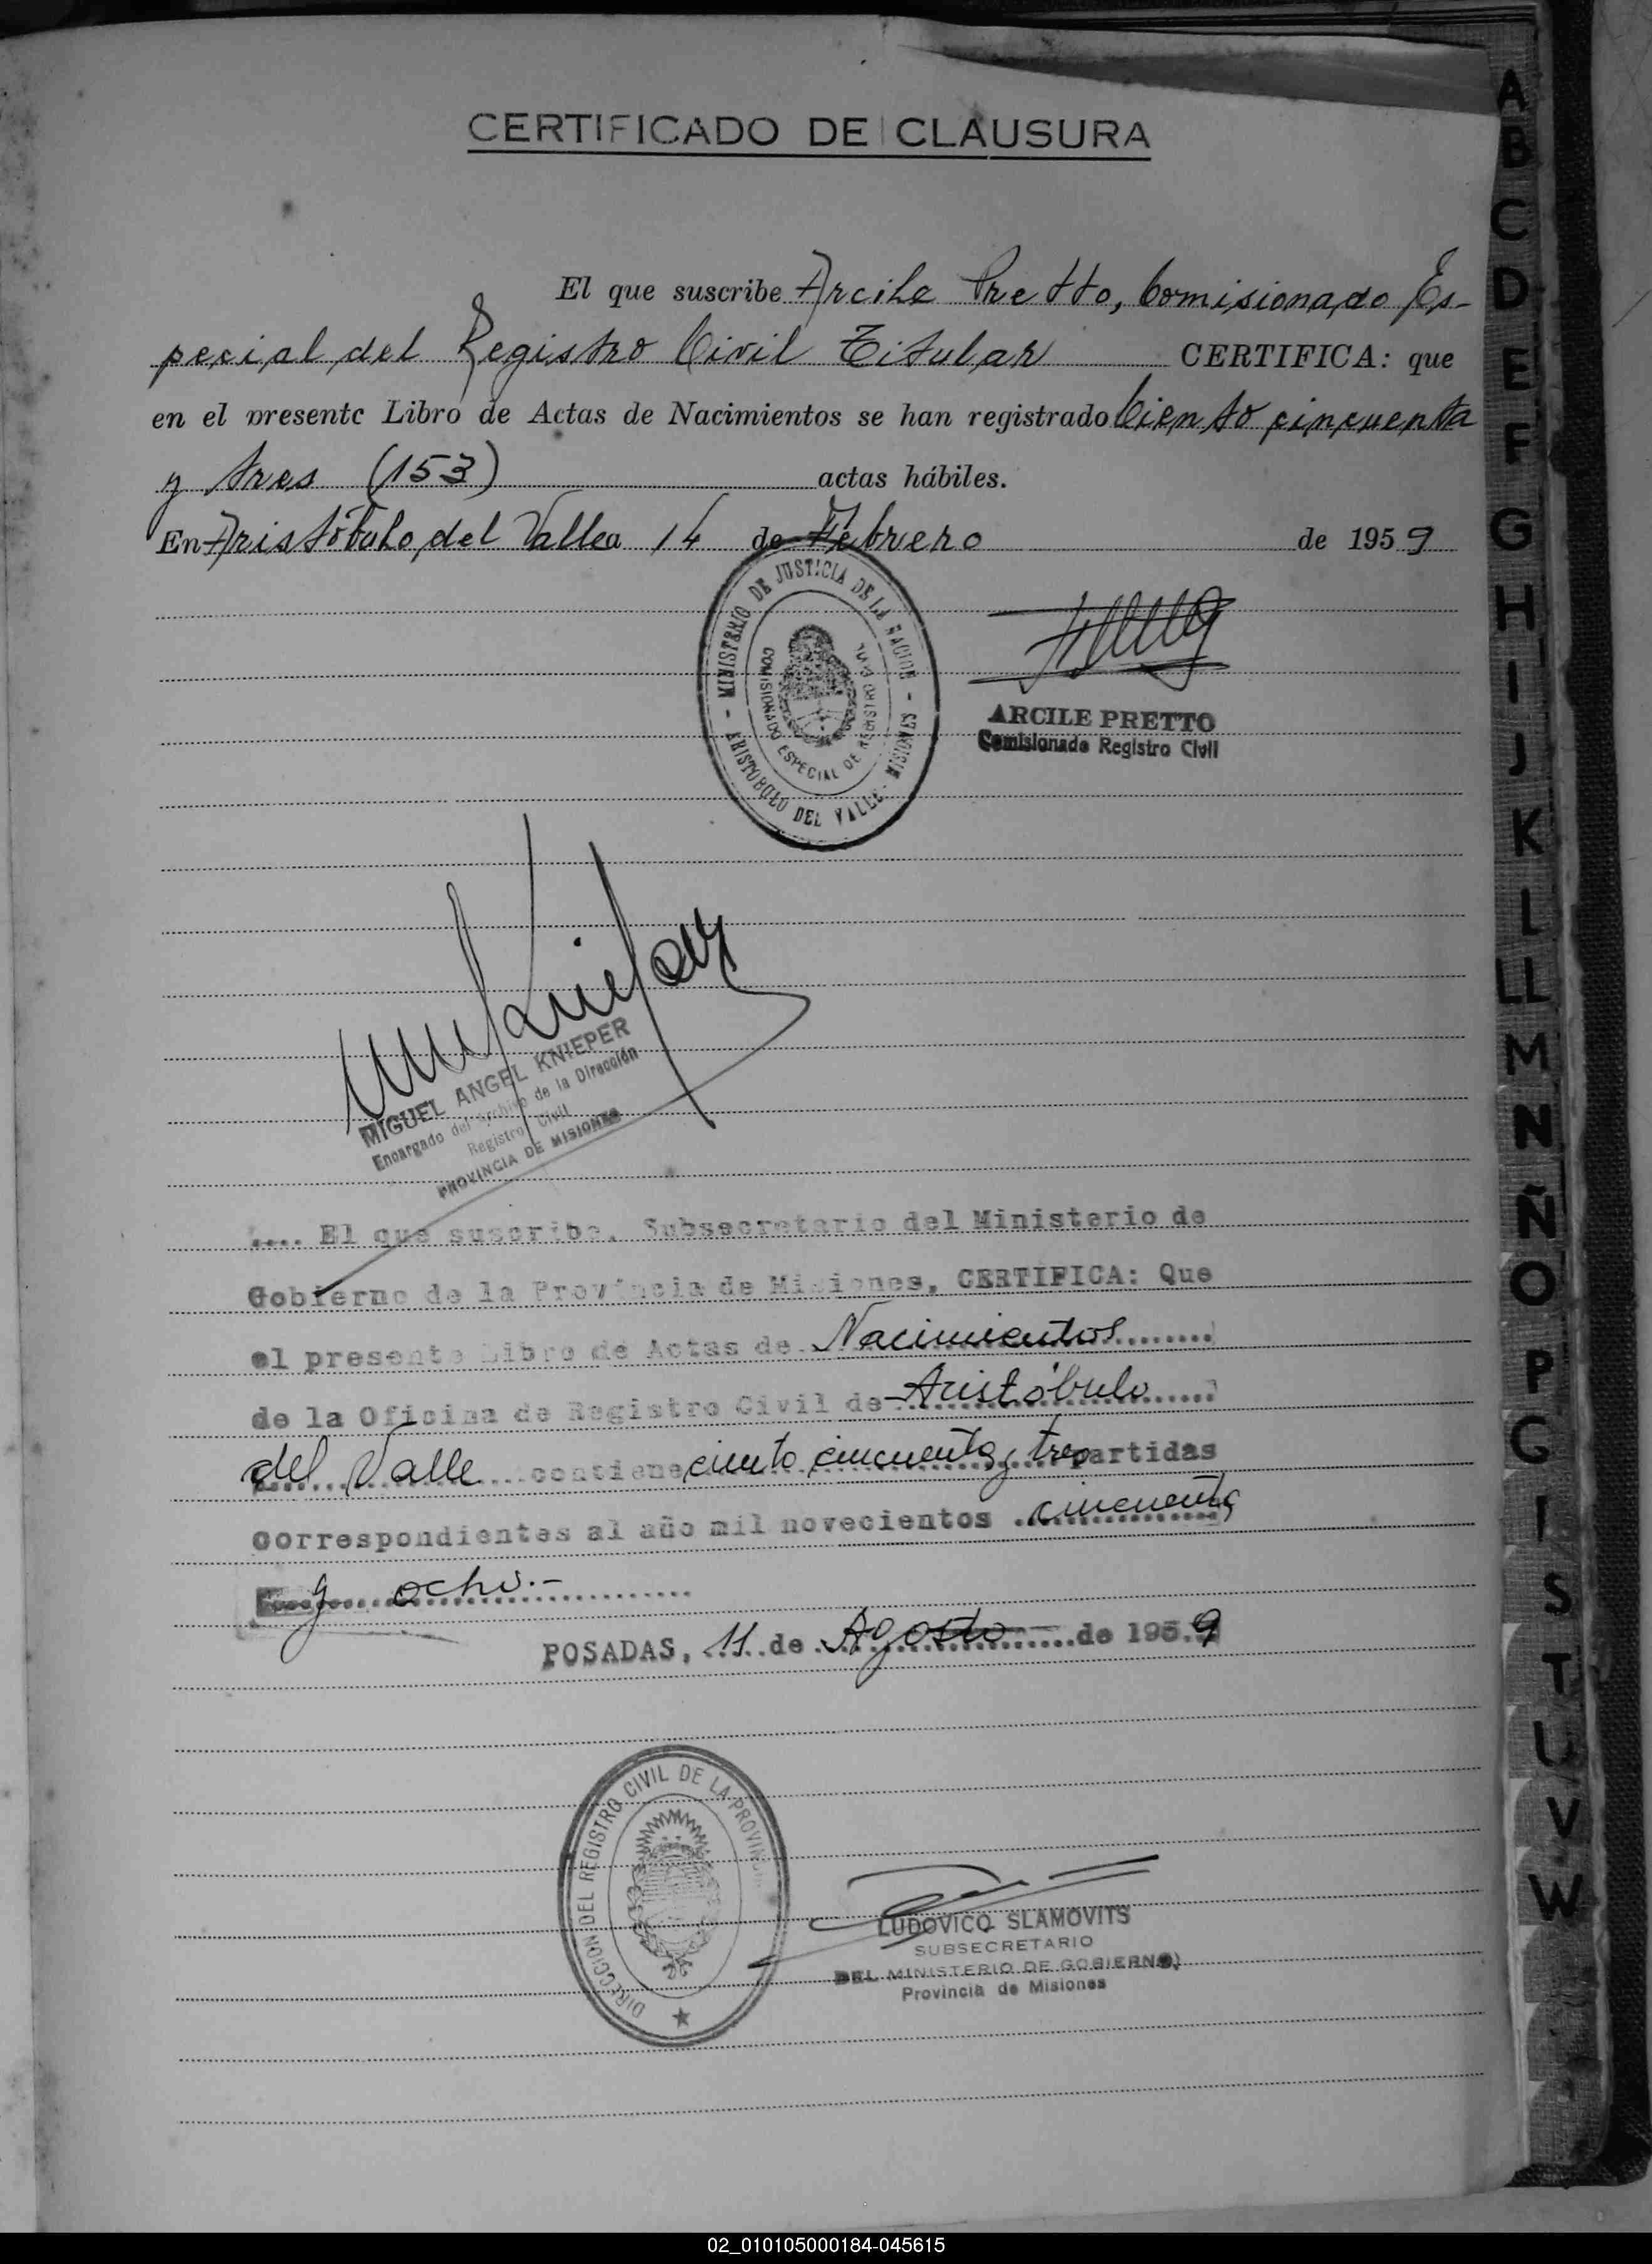 CERTIFICADO DE CLAUSURA
El que suscribe Arcile Pretto, Comisionado Es-
pecial del Registro Civil Titular CERTIFICA: que
en el presente Libro de Actas de Nacimientos se han registrado Ciento cincuenta
y tres (153) actas hábiles.
En Aristóbulo del Valle a 14 de Febrero de 1959
MINISTERIO DE JUSTICIA DE LA NACION - MISIONES - ARISTOBULO DEL VALLE -
COMISIONADO ESPECIAL DE REGISTRO CIVIL
ARCILE PRETTO
Comisionado Registro Civil
MIGUEL ANGEL KNIEPER
Encargado del Archivo de la Dirección
Registro Civil
PROVINCIA DE MISIONES
.... El que suscribe, Subsecretario del Ministerio de
Gobierno de la Provincia de Misiones, CERTIFICA: Que
el presente Libro de Actas de Nacimientos
de la Oficina de Registro Civil de Aristóbulo
del Valle contiene ciento cincuenta y tres partidas
correspondientes al año mil novecientos cincuenta
y ocho.-
POSADAS, 11 de Agosto de 1959
DIRECCION DEL REGISTRO CIVIL DE LA PROVINCIA
LUDOVICO SLAMOVITS
SUBSECRETARIO
DEL MINISTERIO DE GOBIERNO
Provincia de Misiones
A
B
C
D
E
F
G
H
I
J
K
L
LL
M
N
Ñ
O
P
Q
I
S
T
U
V
W
02_010105000184-045615